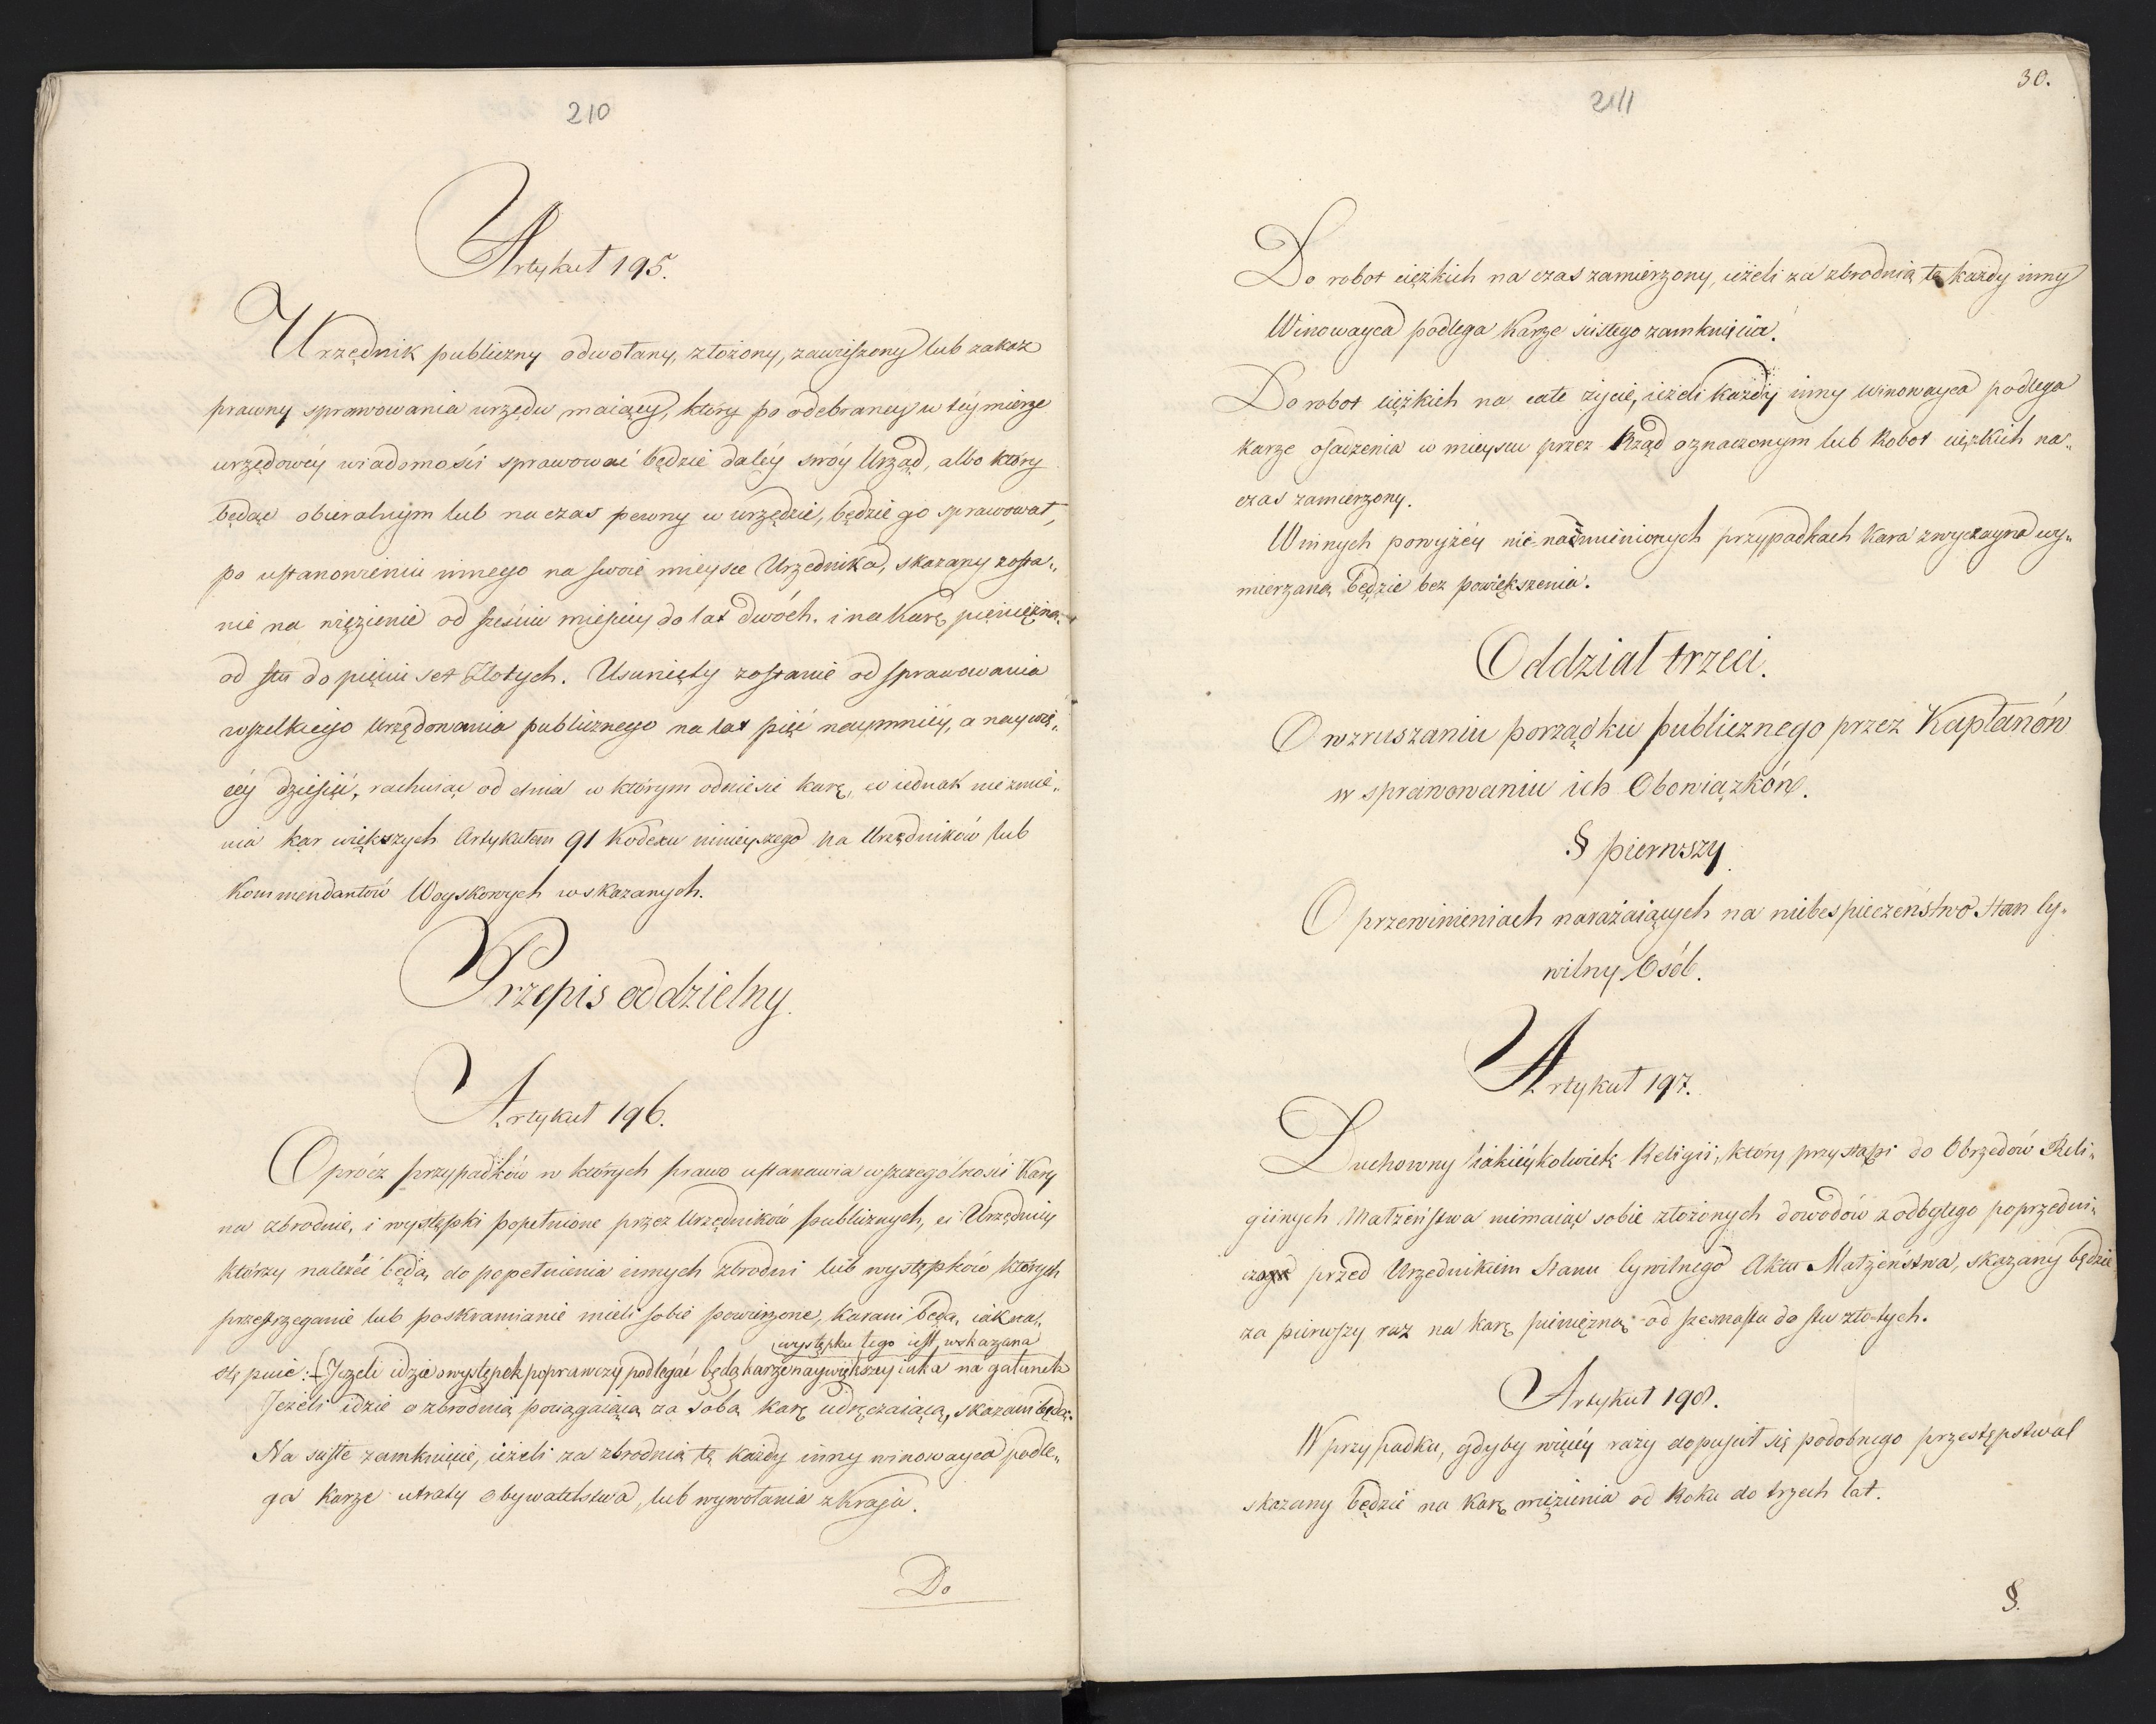 210
Artykuł 195.
Urzędnik publiczny odwołany, złożony, zawieszony lub zakaz
prawny sprawowania urzędu maiący, który po odebraney w téy mierze
urzędowéy wiadomości sprawować będzie daléy swóy Urząd, albo który
będąc obieralnym lub na czas pewny w urzędzie, będzie go sprawował,
po ustanowieniu innego na swoie mieysce Urzędnika, skazany zosta„
nie na więzienie od sześciu miesięcy do lat dwóch. i na karę pieniężną
od stu do pięciu set Złotych. Usunięty zostanie od sprawowania
wszelkiego Urzędowania publicznego na lat pięć naymniéy, a naywię„
céy dziesięć, rachuiąc od dnia w którym odniesie karę, co iednak nie zmie„
nia kar większych Artykułem 91 Kodexu ninieyszego na Urzędników lub
Kommendantów Woyskowych wskazanych.
Przepis oddzielny.
Artykuł 196.
Oprócz przypadków w których prawo ustanawia w szczególności Kary
na zbrodnie, i występki popełnione przez Urzędników publicznych, ci Urzędnicy
którzy należeć będą do popełnienia innych zbrodni lub występków, których
przestrzeganie lub poskramianie mieli sobie powierzone, karani będą, iak na„
występku tego iest wskazana
stępuie: Jeżeli idzie o występek poprawczy podlegać będą karze naywiększey iaka na gatunek
Jeżeli idzie o zbrodnią pociągaiącą za sobą karę udręczaiącą, skazani będą:
Na ścisłe zamknięcie, ieżeli za zbrodnią tę każdy inny winowayca podle„
ga karze utraty obywatelstwa, lub wywołania z Kraju.
Do
211
30.
Do robot ciężkich na czas zamierzony, ieżeli za zbrodnią tę każdy inny
Winowayca podlega Karze ścisłego zamknięcia.
Do robot ciężkich na całe życie, ieżeli każdy inny Winowayca podlega
karze osadzenia w mieyscu przez Rząd oznaczonym lub Robot ciężkich na„
czas zamierzony.
W innych powyżéy nie nadmienionych przypadkach kara zwyczayna wy„
mierzaną będzie bez powiększenia.
Oddział trzeci.
O wzruszaniu porządku publicznego przez Kapłanów
w sprawowaniu ich Obowiązków.
§ pierwszy.
O przewinieniach narażaiących na niebespieczeństwo Stan Cy„
wilny Osób.
Artykuł 197.
Duchowny iakiéykolwiek Religii, który przystąpi do Obrzędów Reli„
giinych Małżeństwa niemaiąc sobie złożonych dowodów z odbytego poprzedni„
czego przed Urzędnikiem Stanu Cywilnego Aktu Małżeństwa, skazany będzie
za pierwszy raz na karę pieniężną od szesnastu do stu złotych.
Artykuł 198.
W przypadku, gdyby więcéy razy dopuścił się podobnego przestępstwa
skazany będzie na karę więzienia od Roku do trzech lat.
§.